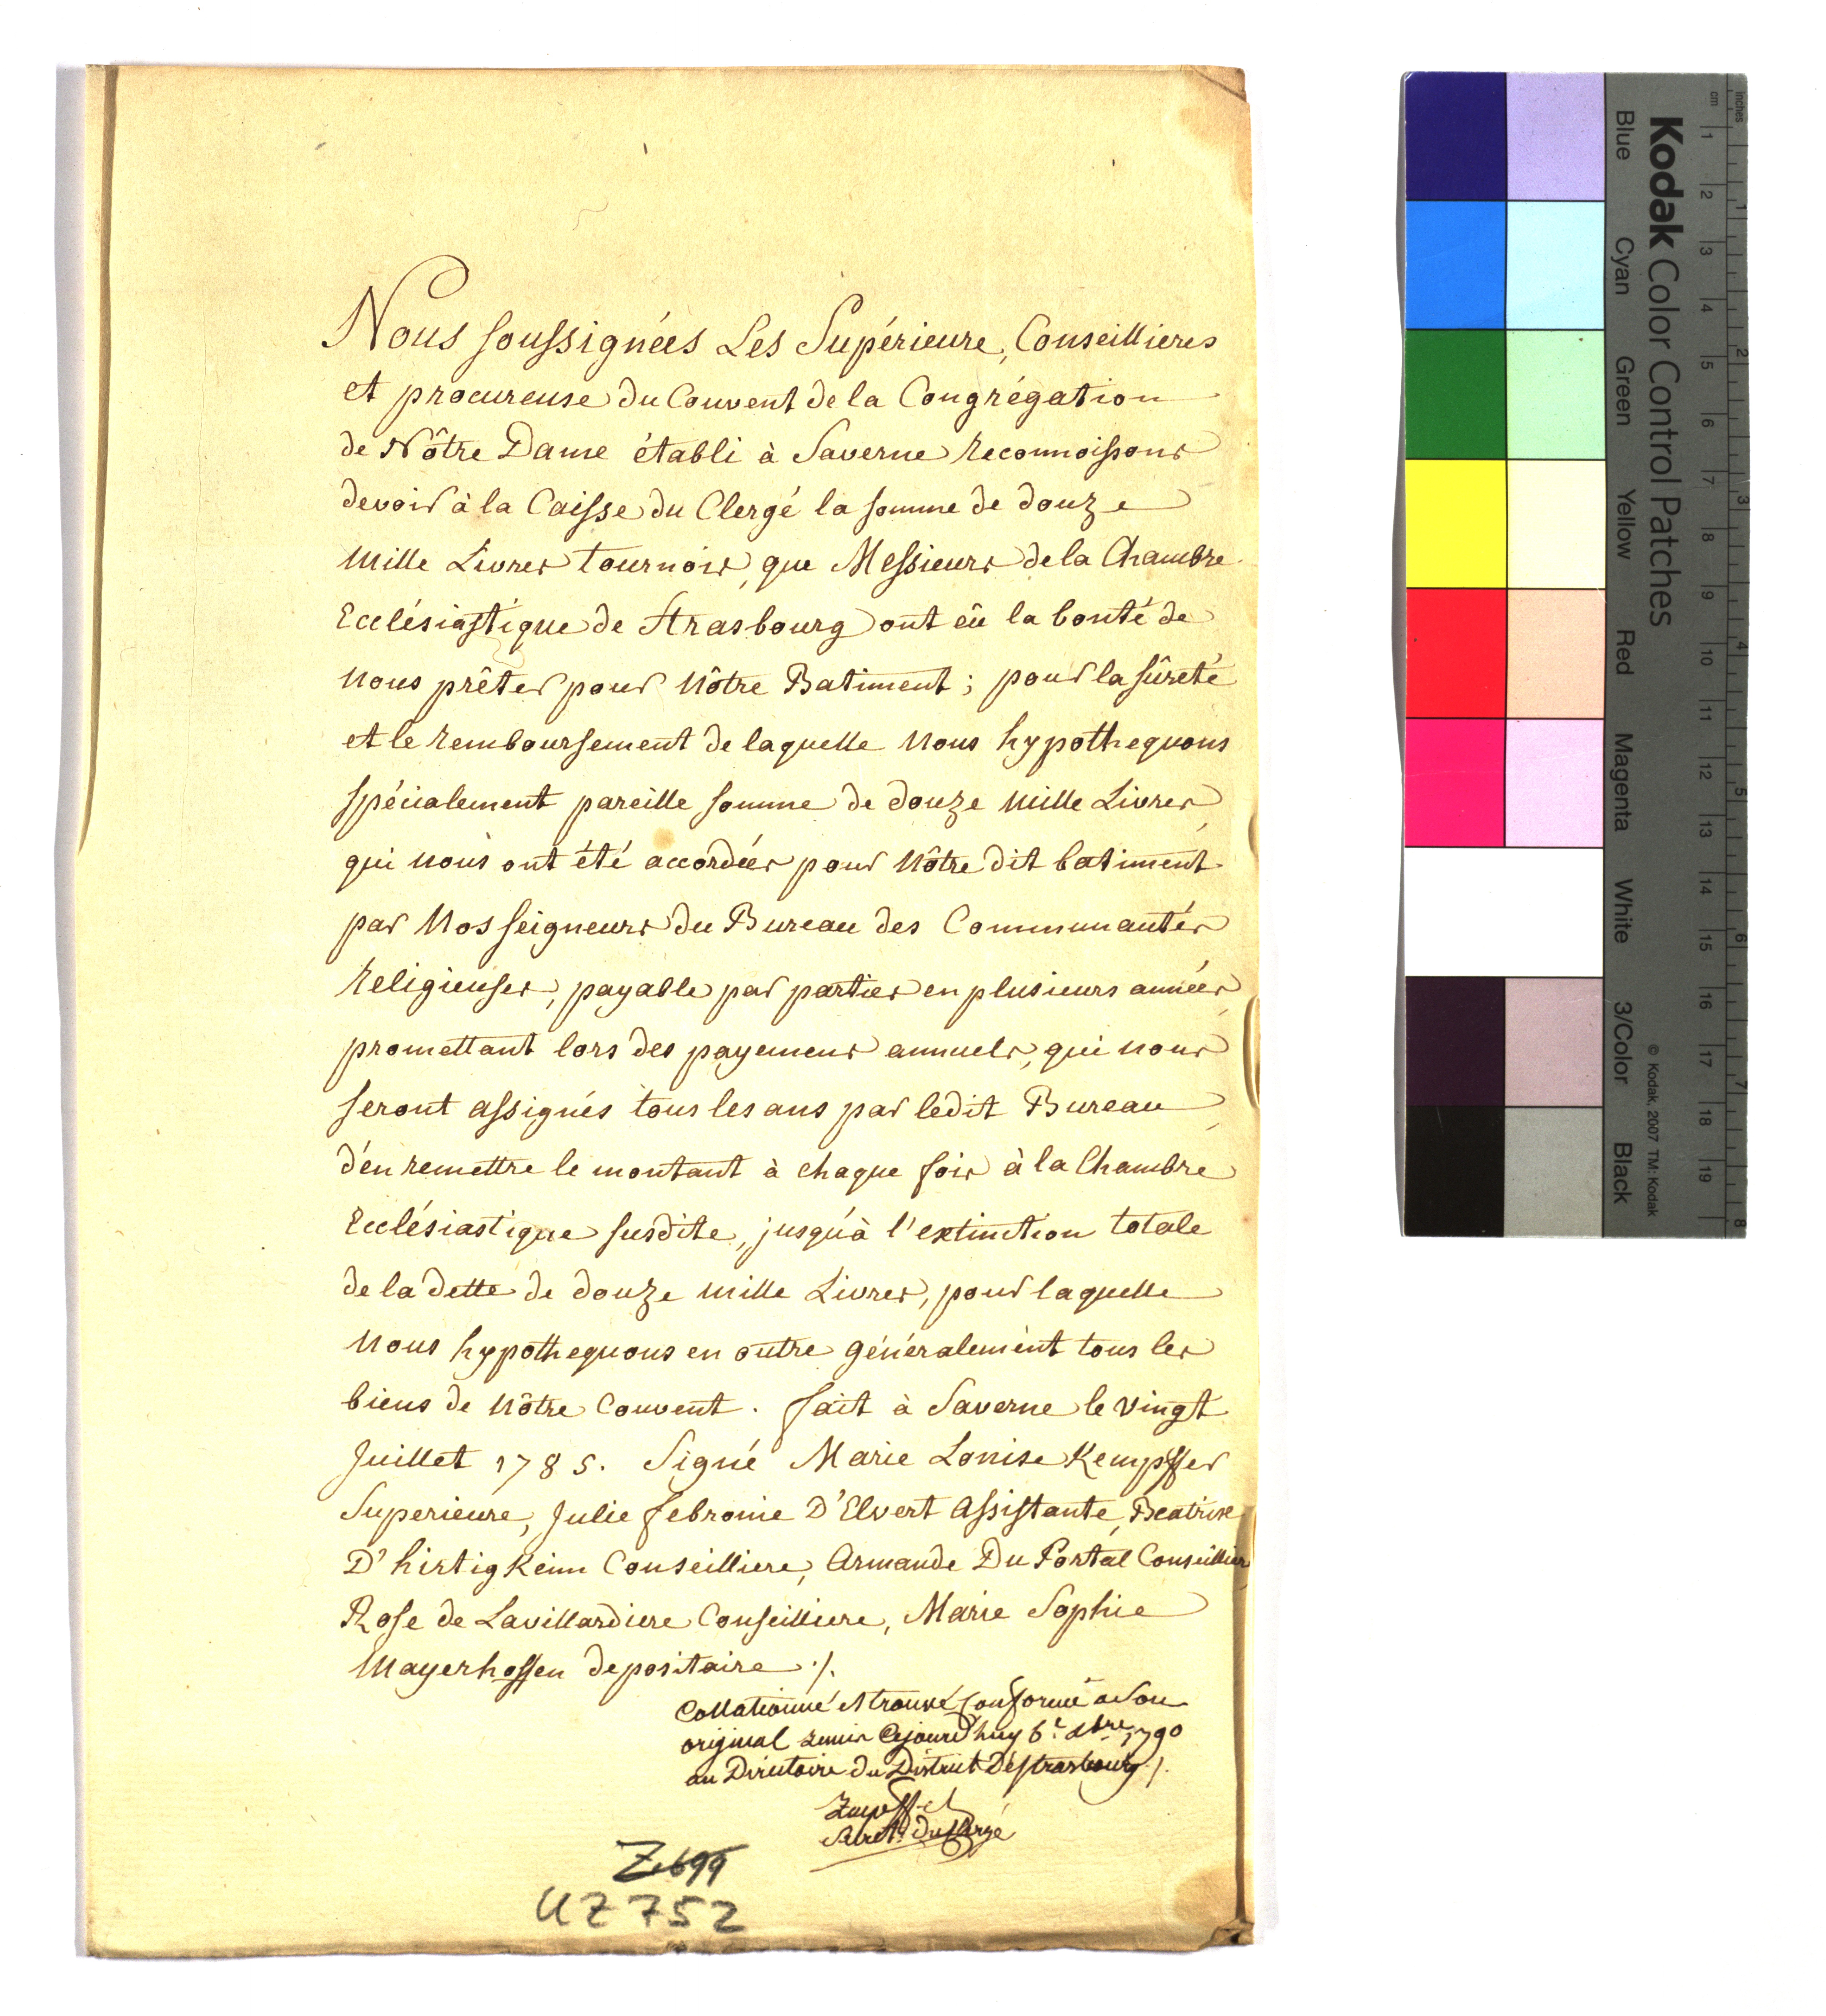 Nous soussignées Les Supérieure, Conseillieres
et procureuse du Couvent de la Congrégation
de Nôtre Dame établi à Saverne reconnoissons
devoir à la Caisse du Clergé la somme de douze
Mille Livres tournois, que Messieurs de la Chambre
Ecclésiastique de Strasbourg ont eû la bonté de
Nous prêter pour Nôtre Batiment ; pour la sûreté
et le remboursement de laquelle Nous hypothequons
spécialement pareille somme de douze Mille Livres,
qui Nous ont été accordées pour Nôtre dit batiment
par Nosseigneurs du Bureau des Communautés
Religieuses, payable par parties en plusieurs années,
promettant lors des payemens annuels, qui nous
seront assignés tous les ans par ledit Bureau,
d'en remettre le montant à chaque fois à la Chambre
Ecclésiastique susdite, jusqu'à l'extinction totale
de la dette de douze Mille Livres, pour laquelle
Nous hypothequons en outre généralement tous les
biens de Nôtre Couvent. fait à Saverne le vingt
Juillet 1785. Signé Marie Louise Kempffer
Superieure, Julie febronie D'Elvert Assistante, Beatrix
D'hirtigkeim Conseilliere, Armande Du Portal Conseilliere,
Rose de Lavillardiere Conseilliere, Marie Sophie
Mayerhoffen depositaire ./.
Collationné et trouvé conforme a son
original remis cejourd'huy 6.e Xbre 1790
au Directoire du District de Strasbourg ./.
Secret. du Clergé
Z.699
UZ 752
Kodak Color Control Patches
Blue Cyan Green Yellow Red Magenta White 3/Color Black
© Kodak, 2007 TM: Kodak
inches 1 2 3 4 5 6 7 8
cm 1 2 3 4 5 6 7 8 9 10 11 12 13 14 15 16 17 18 19